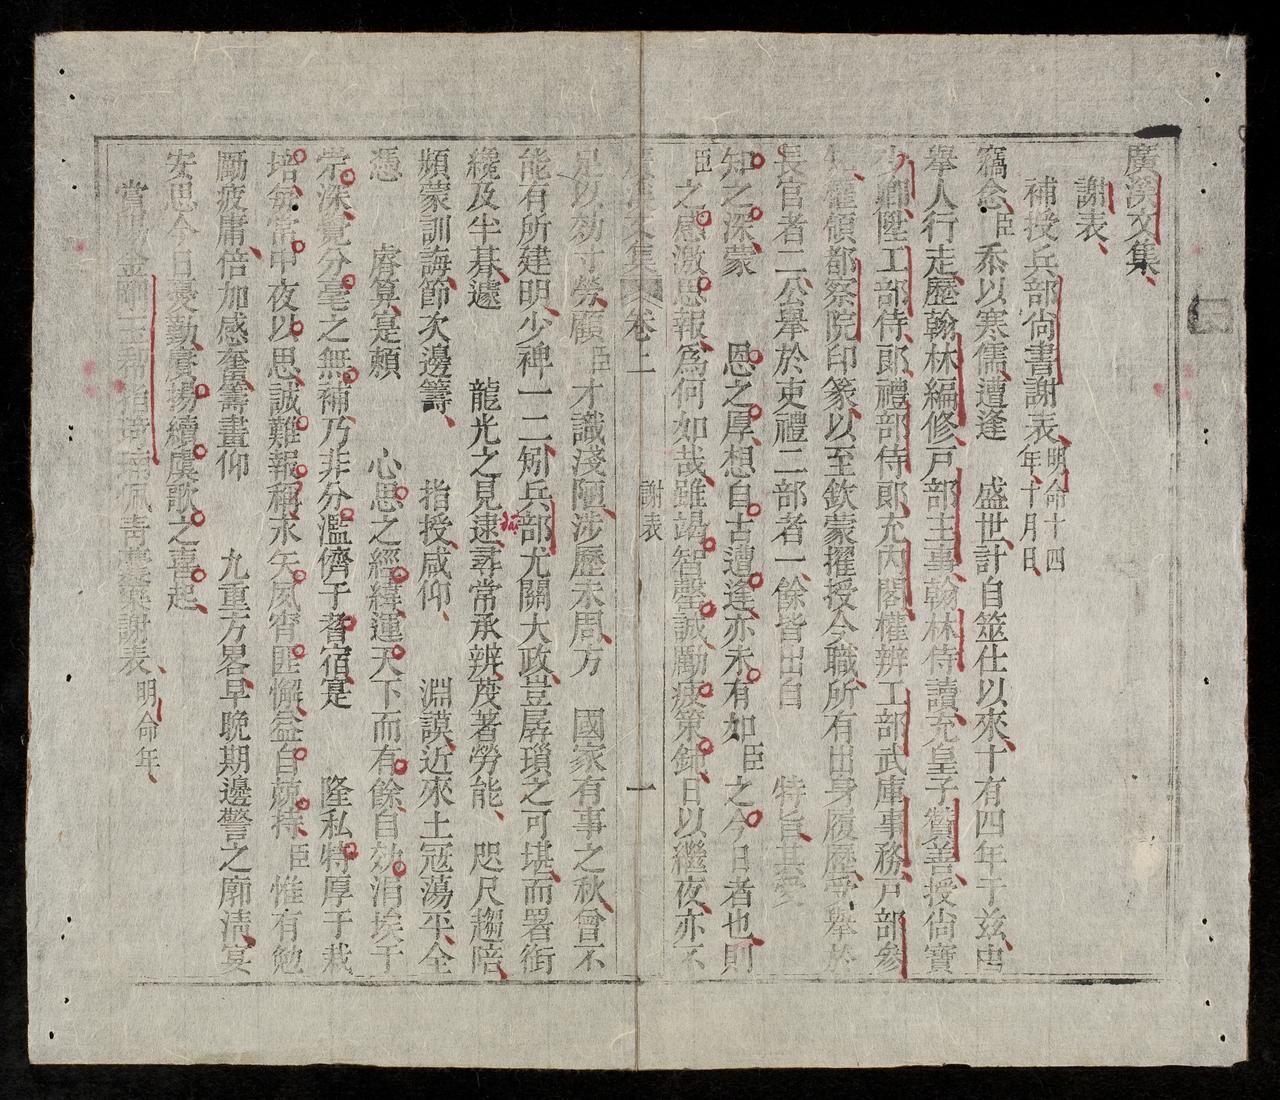 廣溪文集
謝表
補授兵部尚書謝表 明命十四年十月日
竊念臣忝以寒儒遭逢 盛世計自筮仕以來十有四年于茲由
舉人行走歷翰林編修戶部主事翰林侍讀充皇子贊善授尚寶
少卿陞工部侍郎禮部侍郎充內閣權辨工部武庫事務戶部參
知權領都察院印篆以至欽蒙擢授今職所有出身履歷受舉於
長官者二公舉於吏禮二部者一餘皆出自 特旨其受
知之深蒙 恩之厚想自古遭逢亦未有如臣之今日者也則
臣之感激思報為何如哉雖竭智罄誠勵疲策鈍日以繼夜亦不
廣溪文集 卷上 謝表 一
足以効寸勞顧臣才識淺陋涉歷未周方 國家有事之秋曾不
能有所建明少裨一二矧兵部尤關大政豈孱瑣之可堪而署銜
纔及半朞遽 龍光之見逮尋常承辨茂著勞能 咫尺趨陪
頻蒙訓誨節次邊籌 指授咸仰 淵謨近來土寇蕩平全
憑 睿算寔頼 心思之經緯運天下而有餘自効涓埃于
崇深覺分毫之無補乃非分濫儕于耆宿寔 隆私特厚于栽
培每當中夜以思誠難報稱永矢夙宵匪懈益自兢持臣惟有勉
勵疲庸倍加感奮籌畫仰 九重方畧早晚期邊警之廓清宴
安思今日憂勤賡揚續虞歌之喜起
賞賜金剛玉秘指琦南佩壽謝表 明命年